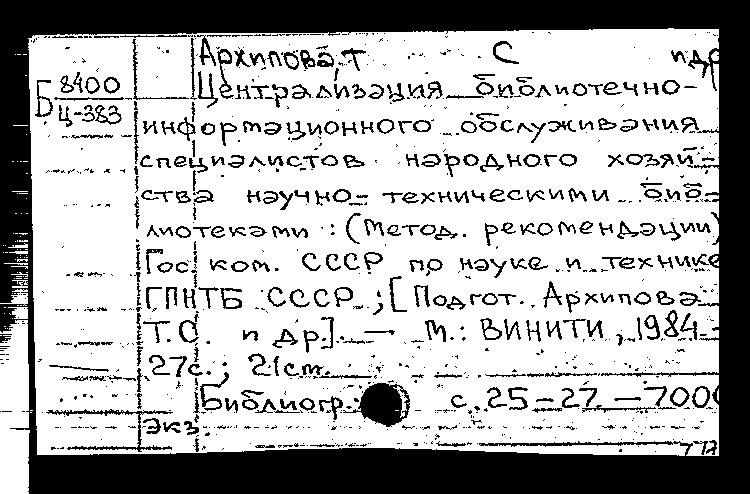 Архипова, Т С и др
Б 8400
Ц-383
Централизация библиотечно-
информационного обслуживания
специалистов народного хозяй-
ства научно-техническими биб-
лиотеками : (Метод. рекомендации)
Гос ком. СССР по науке и технике
ГПНТБ СССР ; [Подгот. Архипова
Т.С. и др]. — М.: ВИНИТИ, 1984 -
27с.; 21см.
Библиогр.: с. 25-27. - 7000
экз.